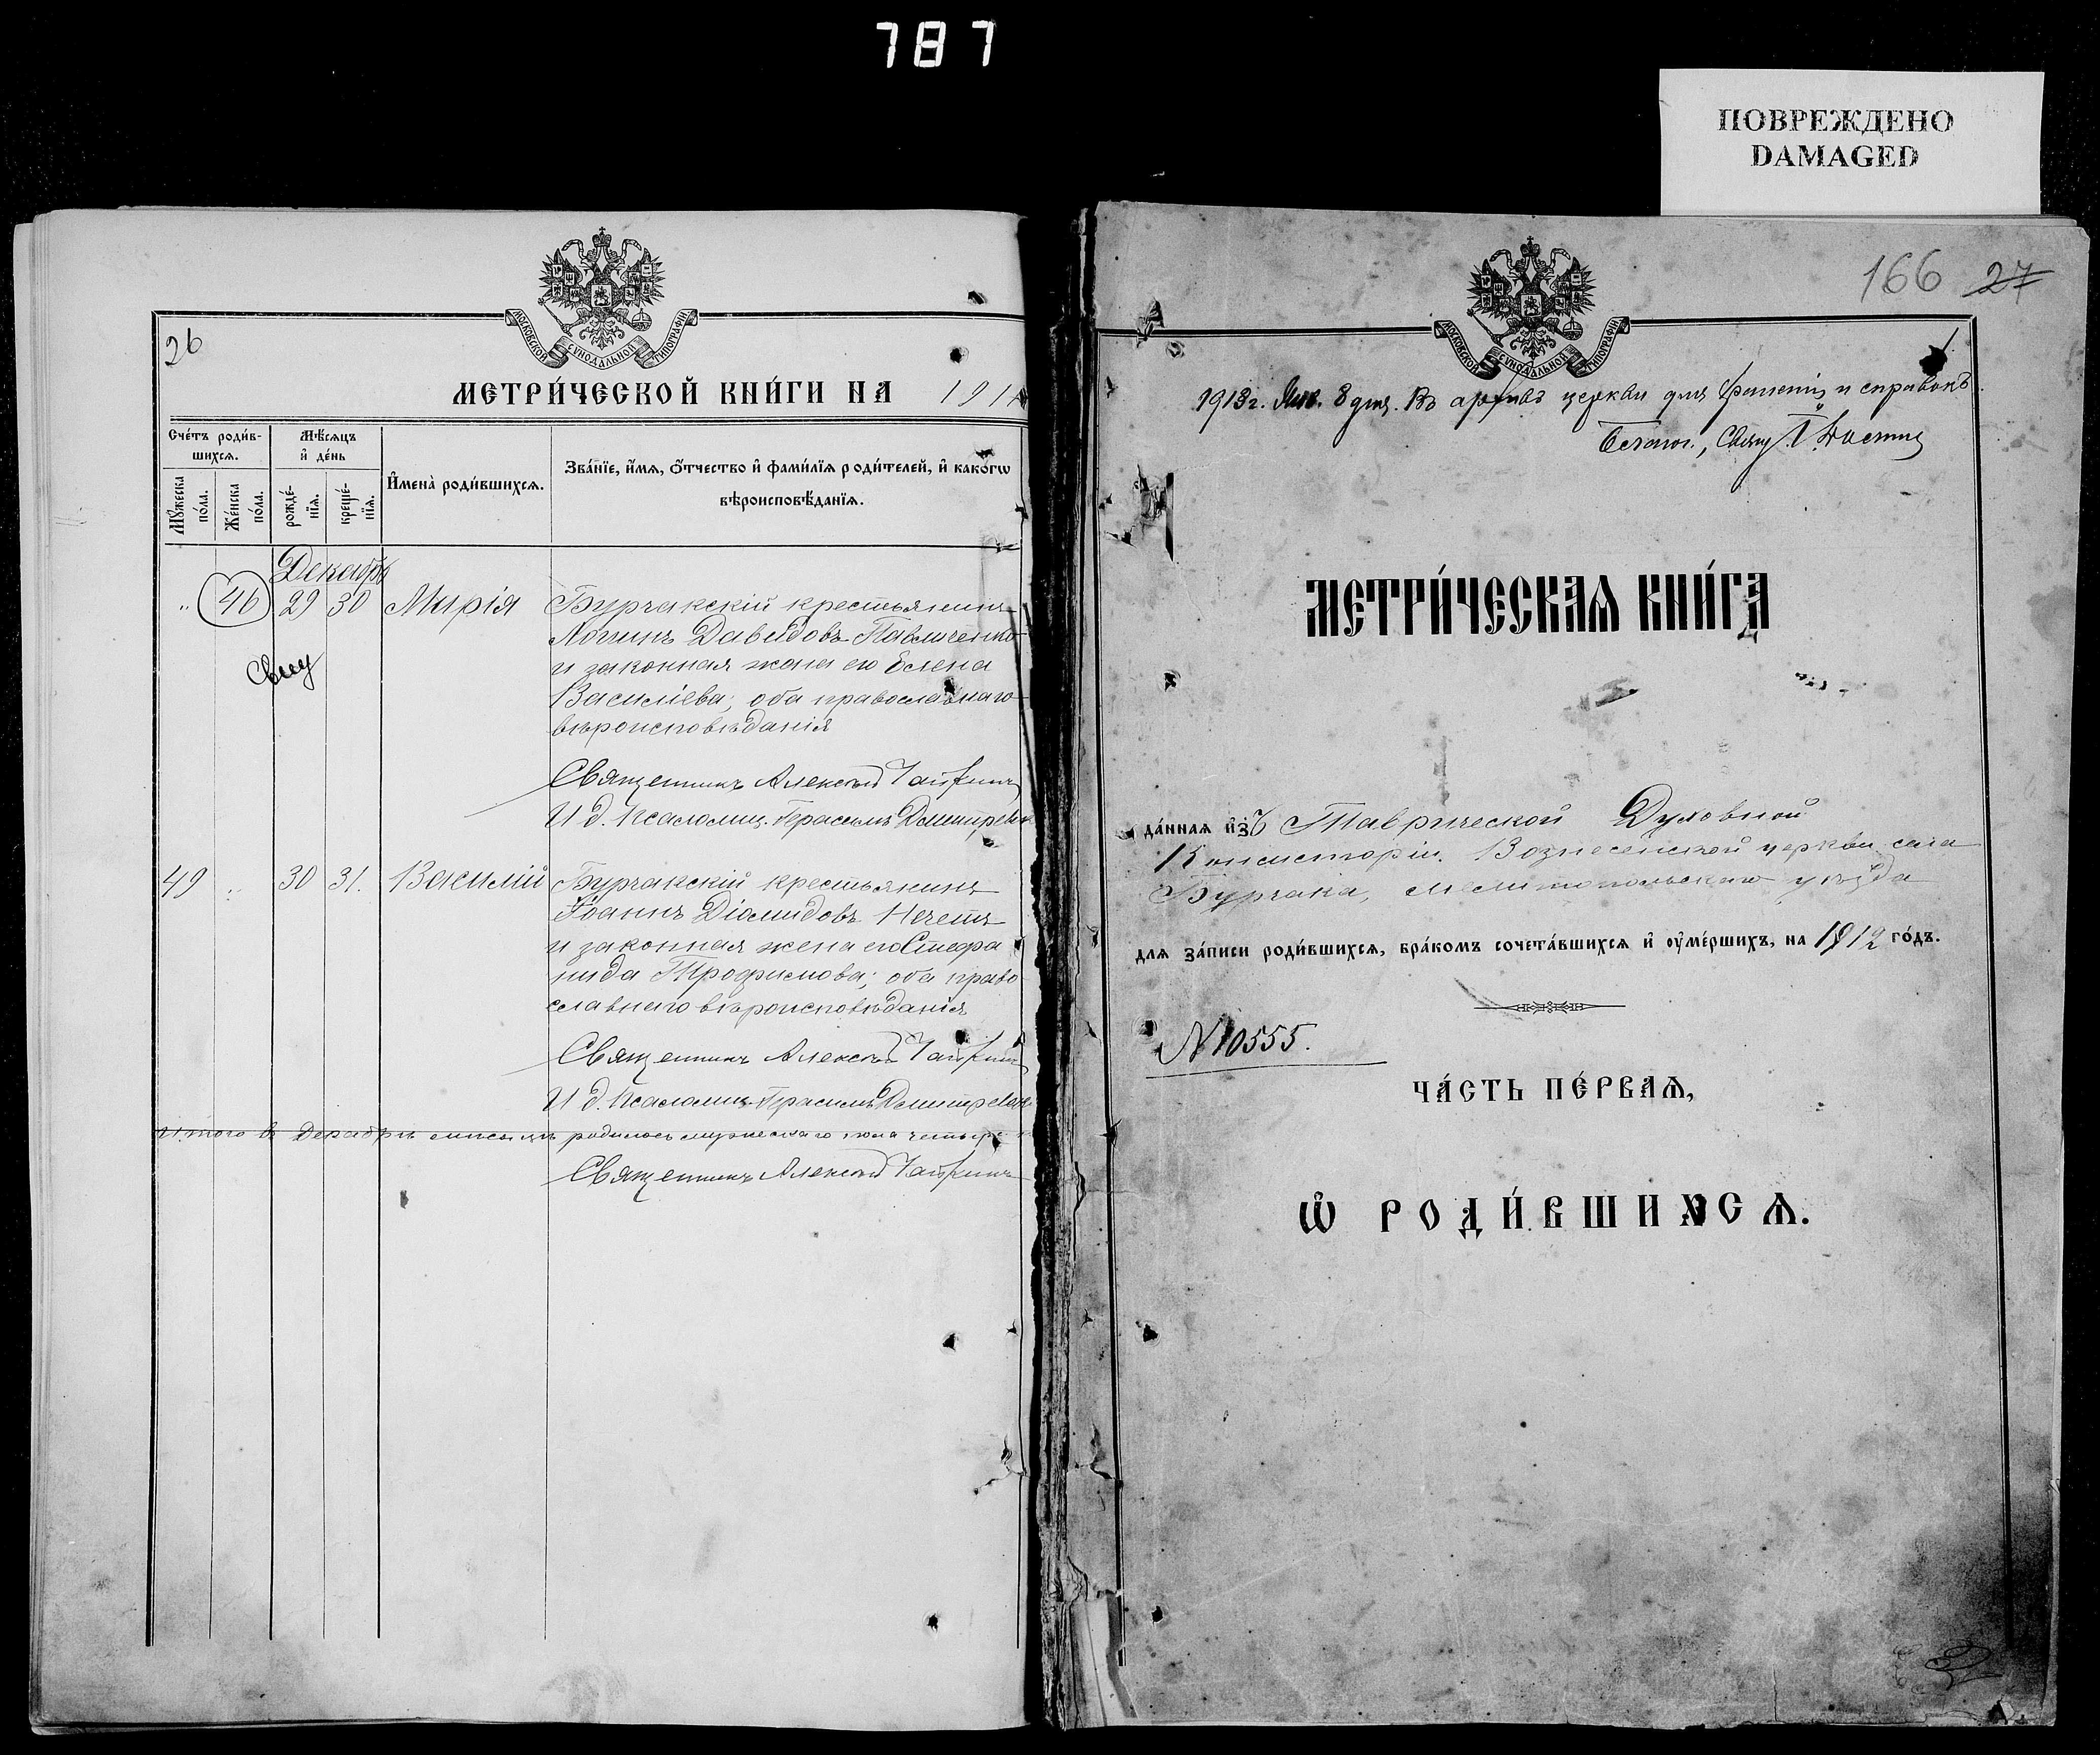 787
ПОВРЕЖДЕНО
DAMAGED
26
МОСКОВСКОЙ СѴНОДАЛЬНОЙ ТИПОГРАФІИ
МЕТРИ́ЧЕСКОЙ КНИ́ГИ НА 191
Сче́тъ роди́в-
шихсѧ.
Мѣ́сѧцъ
и҆ де́нь
Мꙋ́жеска по́ла.
Же́нска по́ла.
рожде́-
нїѧ.
креще́-
нїѧ.
И҆мена̀ роди́вшихсѧ.
Зва́нїе, и҆́мѧ, ѻ҆́тчество и҆ фами́лїѧ роди́телей, и҆ како́гѡ
вѣроисповѣ́данїѧ.
Декабрь
" 46 29 30 Марія Бурчакскій крестьянинъ
Логинъ Давидовъ Павличенко
и законная жена его Елена
Василіева; оба православнаго
вѣроисповѣданія
Свящ
Священникъ Алексѣй
И д. Псаломщ. Герасимъ
49 " 30 31. Василій Бурчакскій крестьянинъ
Іоаннъ Діомидовъ Нечетъ
и законная жена его Стефа
нида Трофимова; оба право
славнаго вѣроисповѣданія
Священникъ Алексѣй
И д. Псаломщ. Герасимъ
Итого въ Декабрѣ мѣсяцѣ родилось мужескаго пола четыре
Священникъ Алексѣй
166 27
МОСКОВСКОЙ СѴНОДАЛЬНОЙ ТИПОГРАФІИ
1913 г. Янв. 8 дня. Въ архивъ церкви для храненія и справокъ.
МЕТРИ́ЧЕСКАѦ КНИ́ГА
да́ннаѧ и҆зъ Таврической Духовной
Консисторіи Вознесенской церкви села
Бурчака, Мелитопольскаго уѣзда
длѧ за́писи роди́вшихсѧ, бра́комъ сочета́вшихсѧ и҆ оу҆ме́ршихъ, на 1912 го́дъ.
№ 10555.
ЧА́СТЬ ПЕ́РВАѦ,
Ѡ҆ РОДИ́ВШИХСѦ.